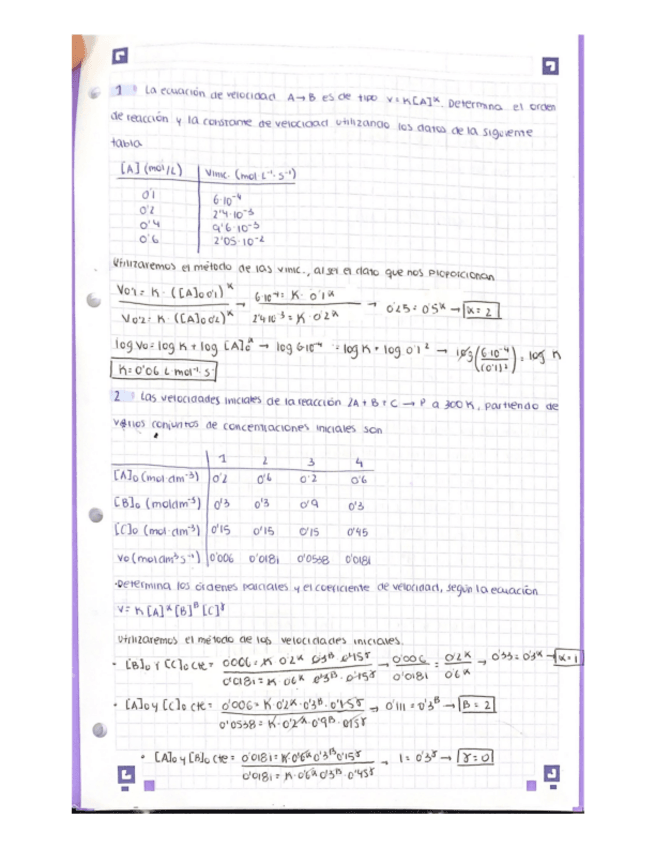 1 La ecuación de velocidad A→B es de tipo v=K[A]^α. Determina el orden
de reacción y la constante de velocidad utilizando los datos de la siguiente
tabla
[A] (mol/L) Vinic. (mol·L⁻¹·s⁻¹)
0'1 6·10⁻⁴
0'2 2'4·10⁻³
0'4 9'6·10⁻³
0'6 2'05·10⁻²
Utilizaremos el método de las vinic., al ser el dato que nos proporcionan
V01 = K·([A]0 01)^α → 6·10⁻⁴ = K·0'1^α → 0'25 = 0'5^α → α = 2
V02 = K·([A]0 02)^α 2'4·10⁻³ = K·0'2^α
log V0 = log K + log [A]0^α → log 6·10⁻⁴ = log K + log 0'1² → log (6·10⁻⁴/(0'1)²) = log K
K = 0'06 L mol⁻¹·s
2 Las velocidades iniciales de la reacción 2A + B + C → P a 300K, partiendo de
varios conjuntos de concentraciones iniciales son
1 2 3 4
[A]0 (mol·dm⁻³) 0'2 0'6 0'2 0'6
[B]0 (mol dm⁻³) 0'3 0'3 0'9 0'3
[C]0 (mol·dm⁻³) 0'15 0'15 0'15 0'45
V0 (mol dm³ s⁻¹) 0'006 0'0181 0'0538 0'0181
·Determina los órdenes parciales y el coeficiente de velocidad, según la ecuación
V = K [A]^α [B]^β [C]^γ
Utilizaremos el método de las velocidades iniciales.
· [B]0 y [C]0 cte = 0'006 = K 0'2^α 0'3^β 0'15^γ → 0'006 = 0'2^α → 0'33 = 0'3^α → α = 1
0'0181 = K 0'6^α 0'3^β·0'15^γ 0'0181 0'6^α
· [A]0 y [C]0 cte = 0'006 = K 0'2^α·0'3^β·0'15^γ → 0'111 = 0'3^β → β = 2
0'0538 = K·0'2^α·0'9^β·0'15^γ
· [A]0 y [B]0 cte = 0'0181 = K·0'6^α 0'3^β 0'15^γ → 1 = 0'3^γ → γ = 0
0'0181 = K·0'6^α 0'3^β·0'45^γ